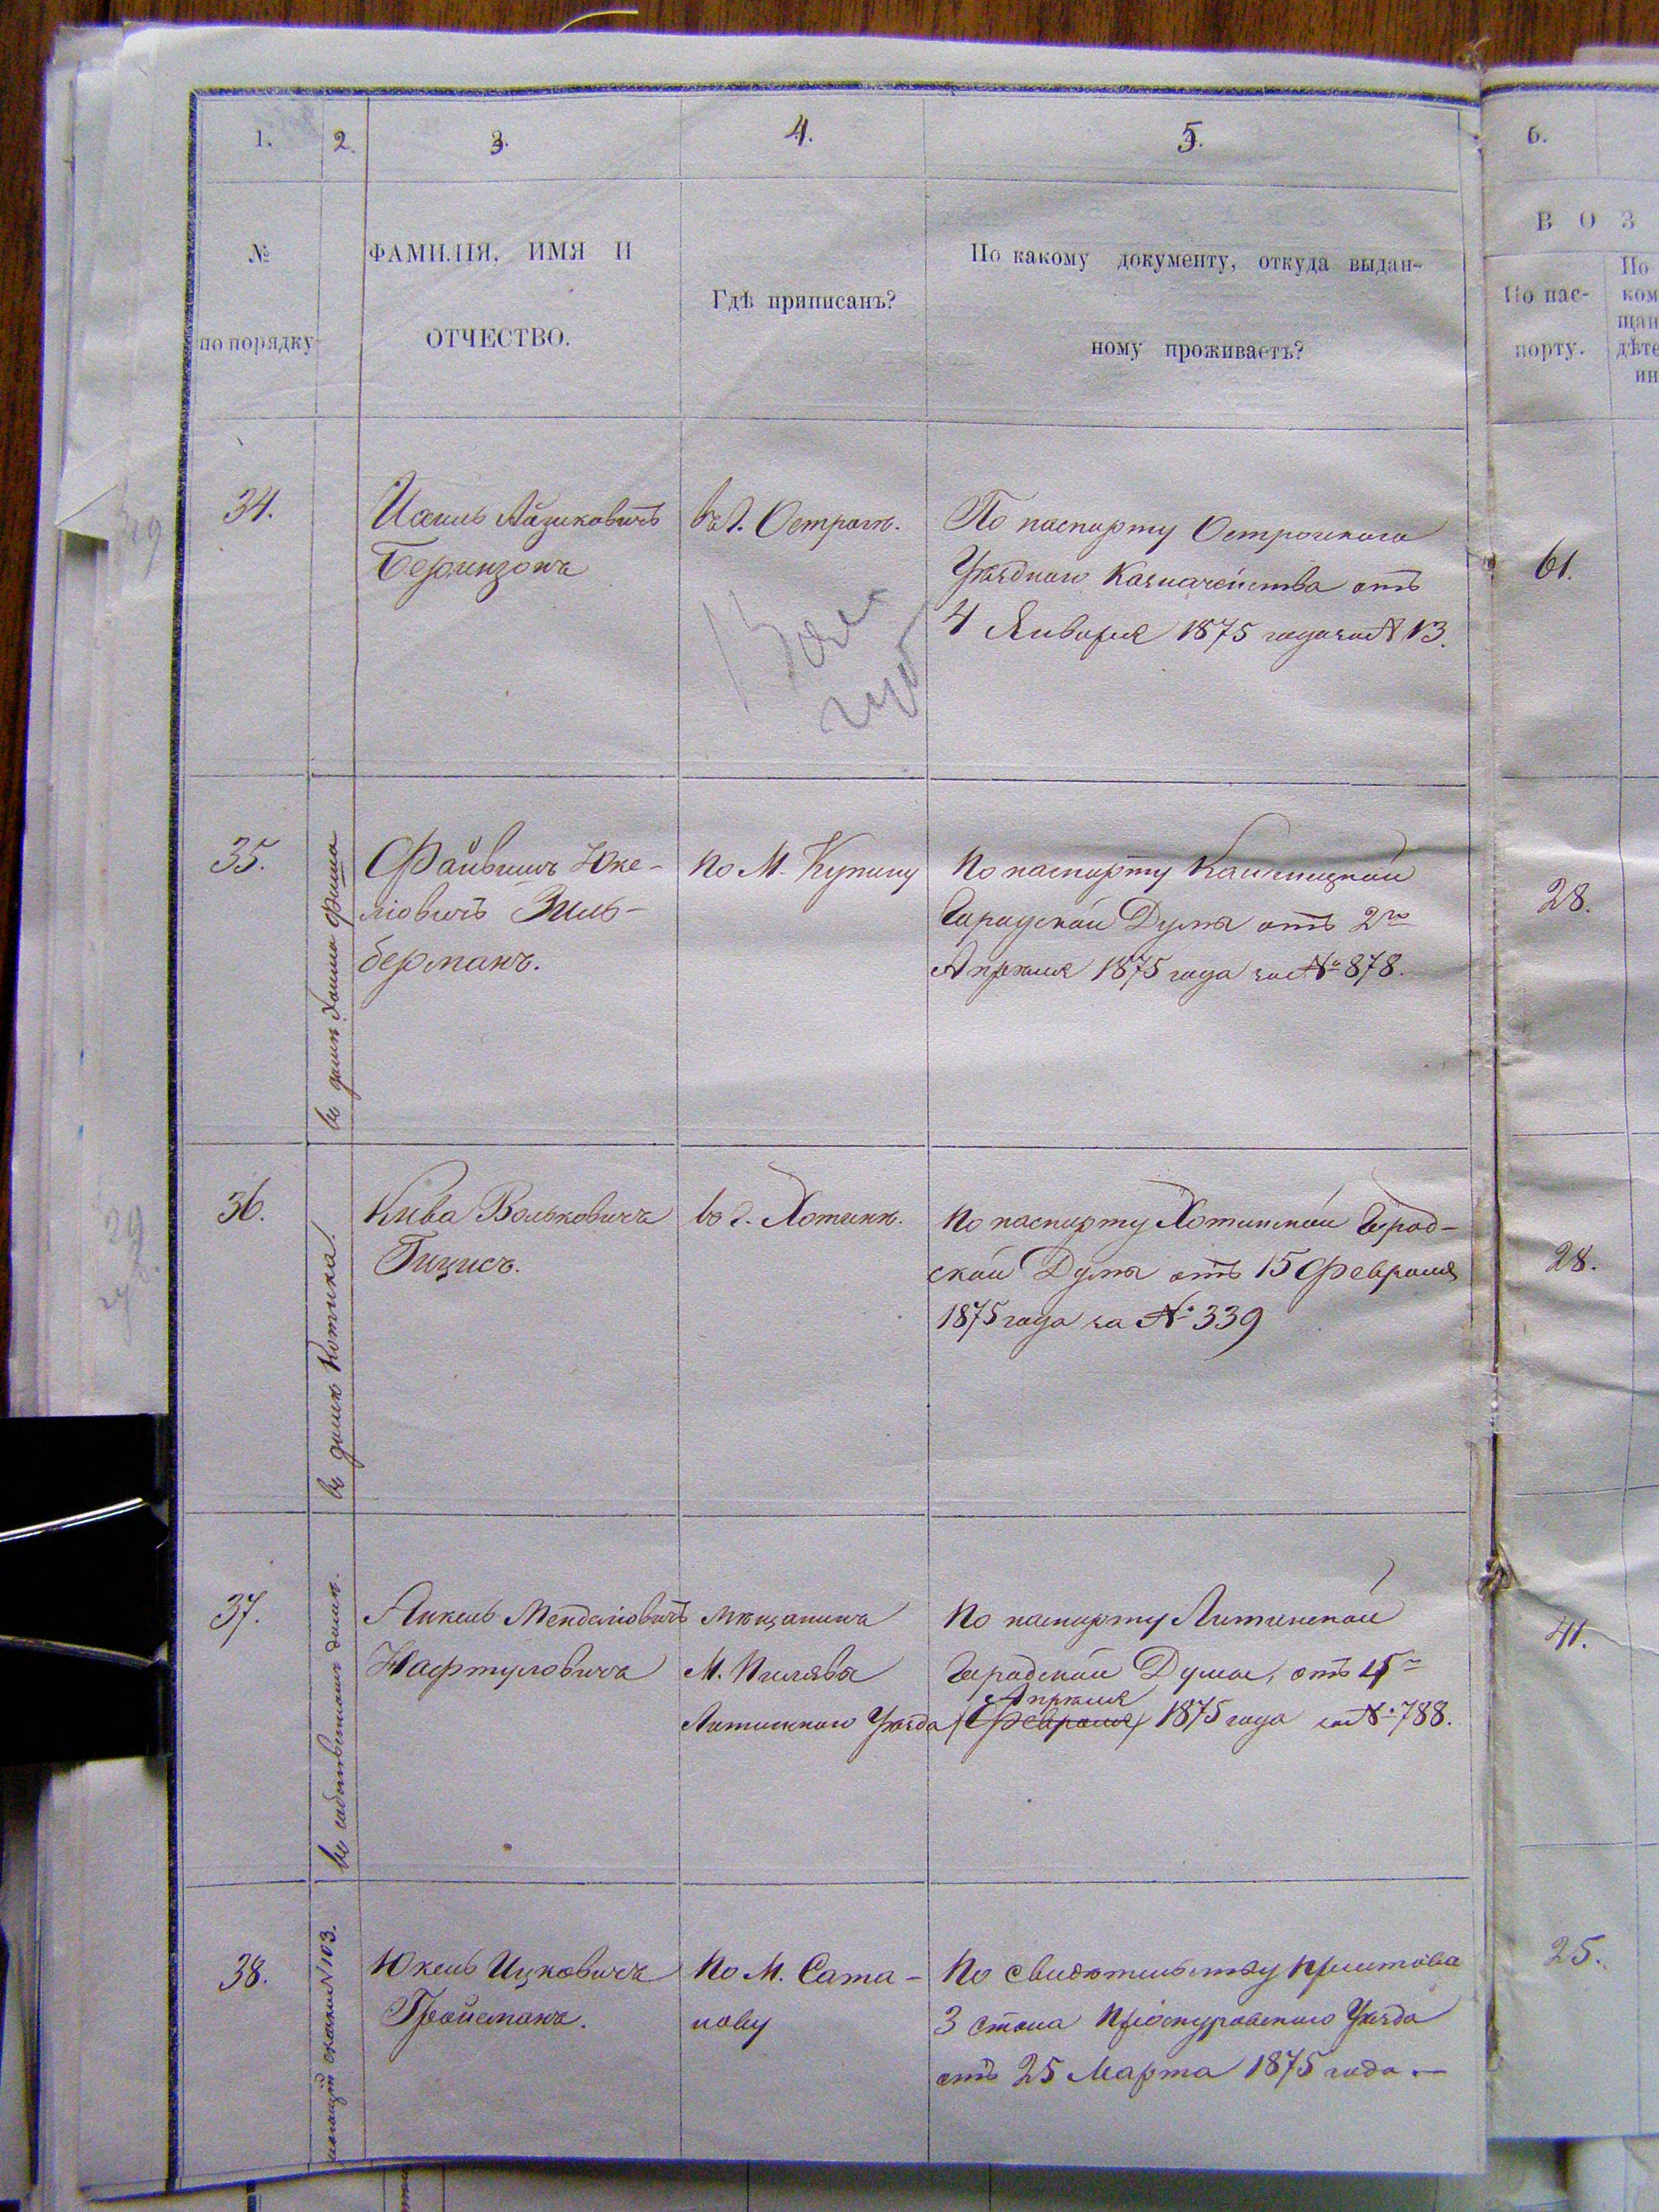 1.
2.
3.
4.
5.
6.
№
по порядку
ФАМИЛІЯ, ИМЯ И
ОТЧЕСТВО.
Гдѣ приписанъ?
По какому документу, откуда выдан-
ному проживаетъ?
В О З
По пас-
порту.
По
ком
щан
дѣте
ин
34.
Айзиковичъ
въ г. Острогѣ.
По паспорту Острожскаго
Уѣзднаго Казначейства отъ
4 Января 1875 года за № 13.
61.
35.
въ домѣ Хаима Фишма
Файвишъ Юке-
ліовичъ Зиль-
берманъ.
по М. Купину
По паспорту Каменецкой
Городской Думы отъ 2го
Апрѣля 1875 года за № 878.
28.
36.
въ домѣ Котика.
Акива Вольковичъ
Гицисъ.
въ г. Хотинѣ.
По паспорту Хотинской Город-
ской Думы отъ 15 Февраля
1875 года за № 339
28.
37.
въ собственномъ домѣ.
Янкель Менделіовичъ
Нафтуловичъ
мѣщанинъ
М. Пилявы
Литинскаго Уѣзда
По паспорту Литинской
Городской Думы, отъ
Апрѣля
(Февраля) 1875 года за № 788.
41.
38.
№ 103.
Юкель Ицковичъ
Гройсманъ.
По М. Сата-
нову
По свидѣтельству пристава
3 стана Проскуровскаго Уѣзда
отъ 25 Марта 1875 года.—
25.